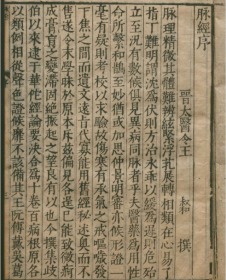 脈經序
晉太醫令王 叔和 撰
脈理精微其體難辨絃緊浮芤展轉相類在心易了
指下難明謂沈為伏則方治永乖以緩為遲則危殆
立至況有數候俱見異病同脈者乎夫醫藥為用性
命所繫和鵲至妙猶或加思仲景明審亦候形證一
毫有疑則考校以求驗故傷寒有承氣之戒嘔噦發
下焦之間而遺文遠旨代寡能用舊經秘述奧而不
售遂令末學昧於原本斥茲偏見各逞己能致微痾
成膏肓之變滯固絕振起之望良有以也今撰集歧
伯以來逮于華佗經論要決合為十卷百病根原各
以類例相從聲色證候靡不該備其王阮傅戴吳葛